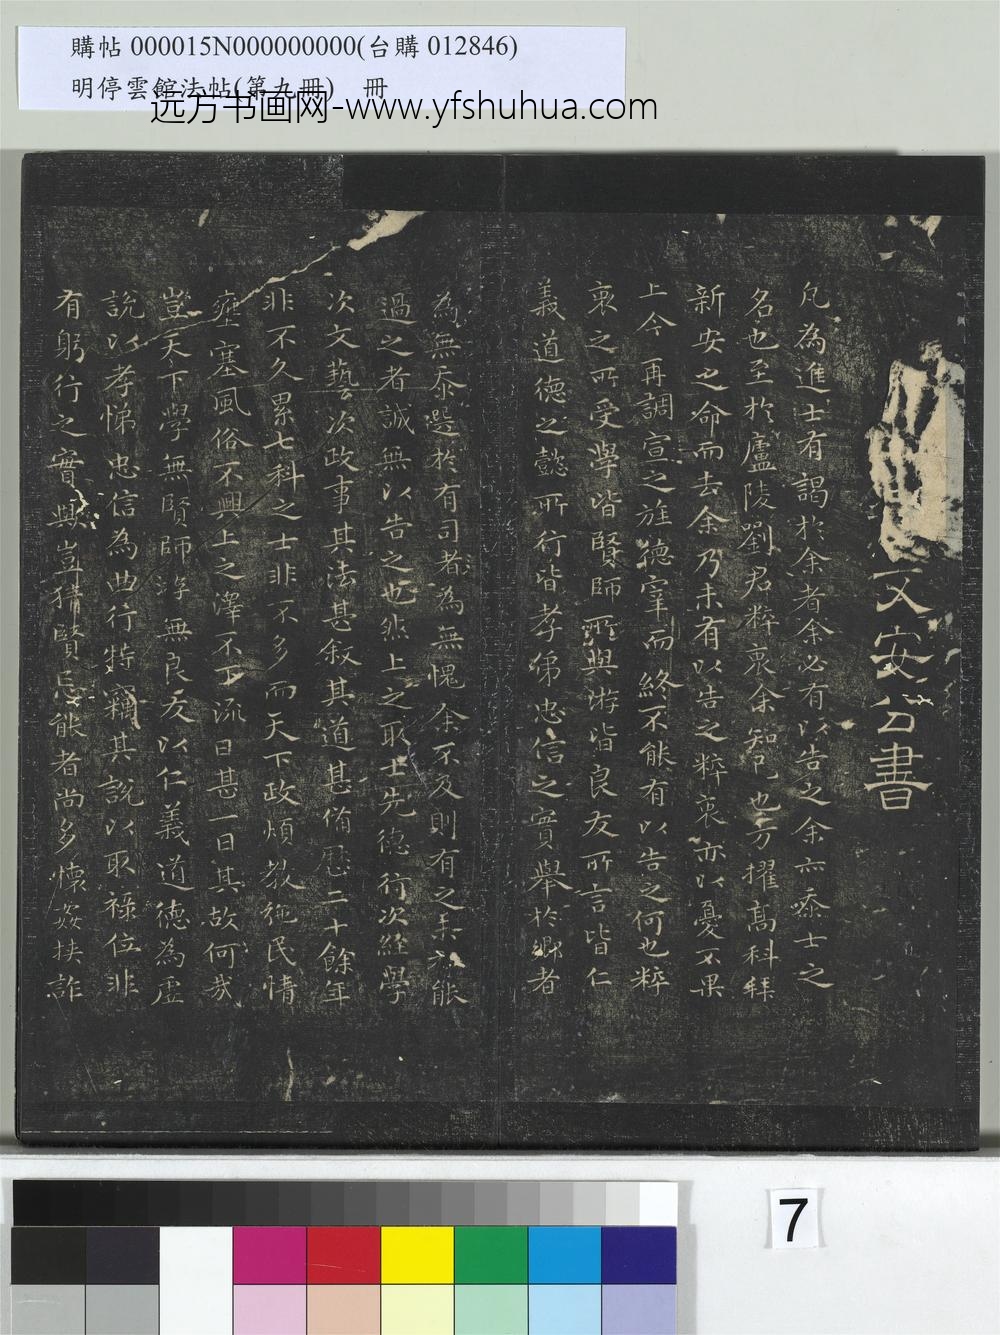 購帖 000015N000000000(台購 012846)
明停雲館法帖(第九冊) 冊
远方书画网-www.yfshuhua.com
文安公書
凡為進士有謁於余者余必有以告之余亦忝士之
名也至於廬陵劉君粹衷余知己也方擢髙科釋
新安之命而去余乃未有以告之粹衷亦以憂不果
上今再調宣之旌德宰而終不能有以告之何也粹
衷之所受學皆賢師所與游皆良友所言皆仁
義道德之懿所行皆孝弟忠信之實舉於鄉者
為無忝選於有司者為無愧余不及則有之未有能
過之者誠無以告之也然上之取士先德行次經學
次文藝次政事其法甚叙其道甚脩歷二十餘年
非不久累七科之士非不多而天下政煩教弛民情
壅塞風俗不興上之澤不下流日甚一日其故何哉
豈天下學無賢師游無良友以仁義道德為虛
說以孝悌忠信為曲行特竊其說以取祿位非
有躬行之實與豈猜賢忌能者尚多懷姦挾詐
7